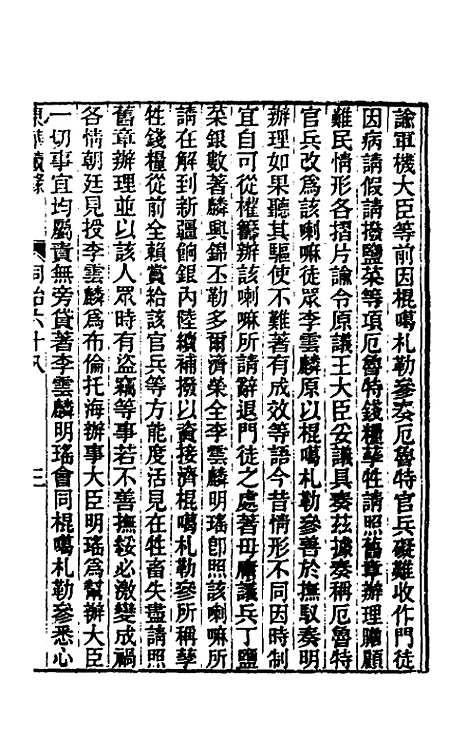 諭軍機大臣等前因棍噶札勒參奏厄魯特官兵礙難收作門徒
因病請假請撥鹽菜等項厄魯特錢糧孳牲請照舊章辦理臚顧
難民情形各摺片諭令原議王大臣妥議具奏茲據奏稱厄魯特
官兵改為該喇嘛徒眾李雲麟原以棍噶札勒參善於撫馭奏明
辦理如果聽其驅使不難著有成效等語今昔情形不同因時制
宜自可從權辦該喇嘛所請辭退門徒之處著毋庸議兵丁鹽
菜銀數著麟興錦丕勒多爾濟榮全李雲麟明瑤卽照該喇嘛所
請在解到新疆餉銀內陸續補撥以資接濟棍噶札勒參所稱孳
牲錢糧從前全賴賞給該官兵等方能度活見在牲畜失盡請照
舊章辦理並以該人眾時有盜竊等事若不善撫綏必激變成禍
各情朝廷見授李雲麟為布倫托海辦事大臣明瑤為幫辦大臣
一切事宜均屬責無旁貸著李雲麟明瑤會同棍噶札勒參悉心
東華續錄 同治六十八 三